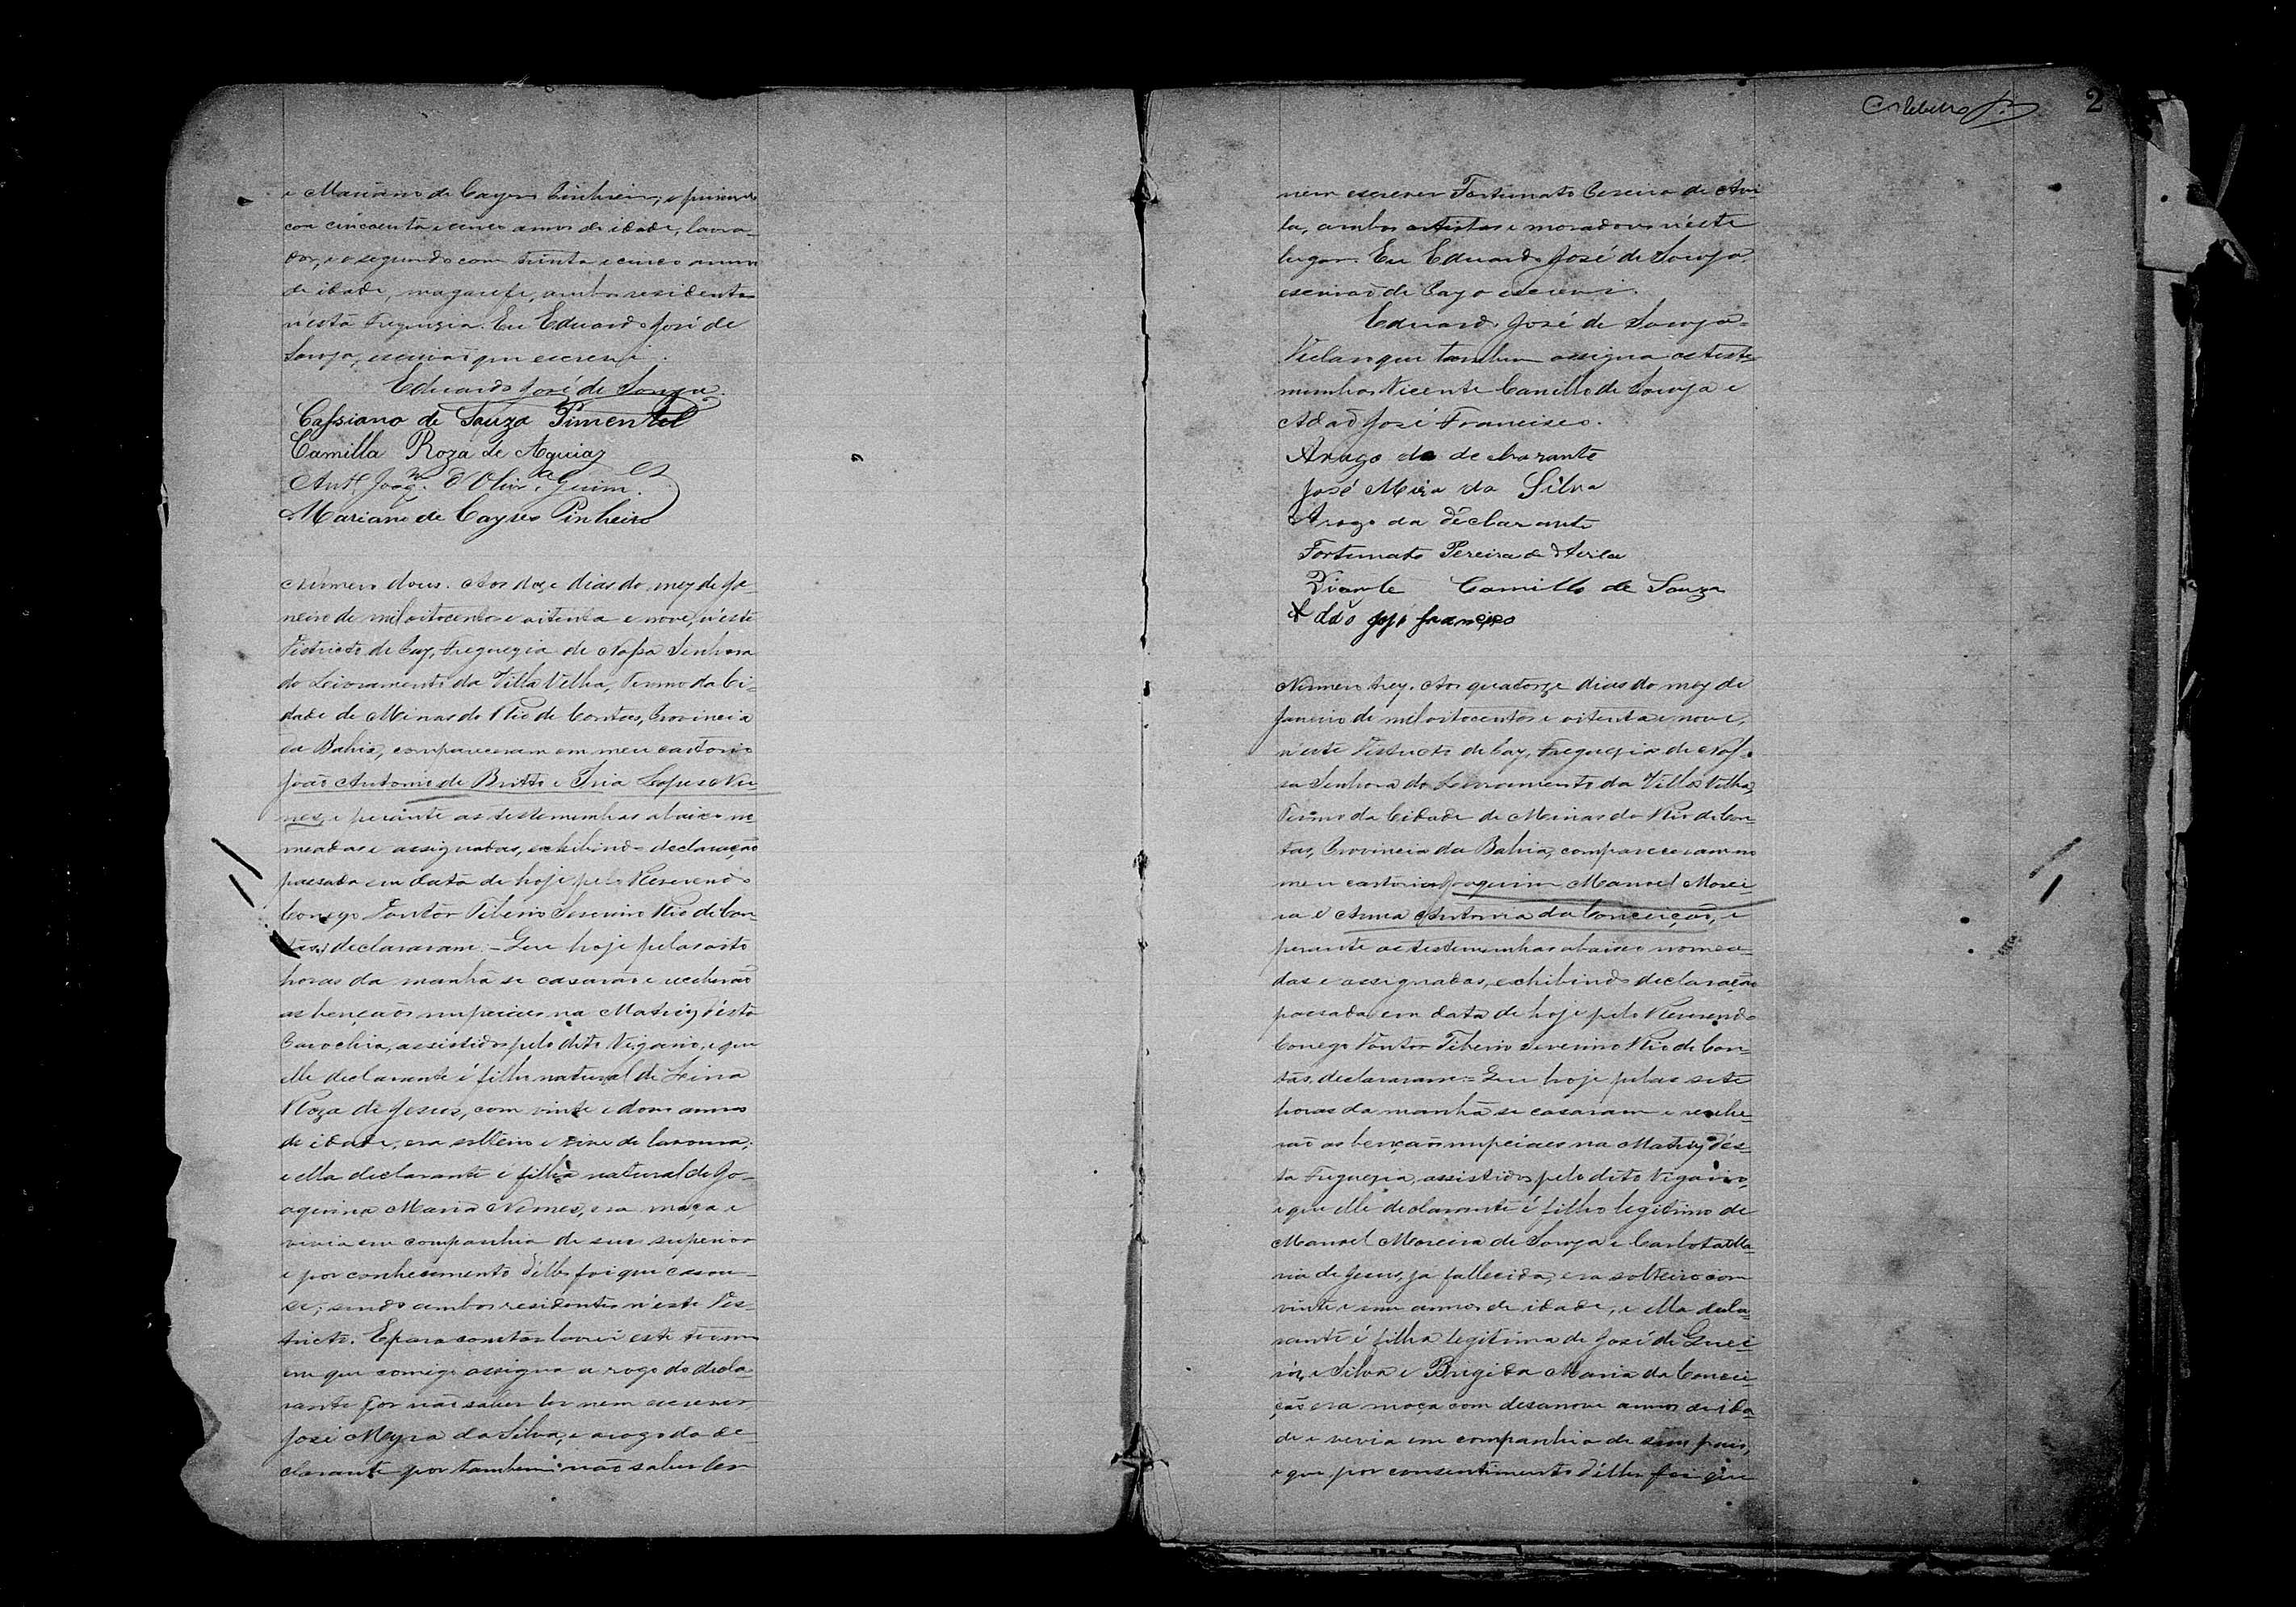 e Mariano de Cayres Pinheiro, o primeiro
com cincoenta e cinco annos de idade, lavra-
dor, e o segundo com trinta e cinco annos
de idade, magarefe, ambos residentes
n'esta Freguezia. Eu Eduardo José de
Souza, escrivaõ que escrevi.
Eduardo José de Souza.
Cassiano de Sauza Pimentel
Camilla Roza de Aguiar
Antº Joaqm. d'Olivra. Guims.
Mariano de Cayres Pinheiro
Numero dous. Aos doze dias do mez de Ja-
neiro de mil oitocentos e oitenta e nove, n'este
Districto de Paz, Freguezia de Nossa Senhora
do Livramento da Villa Velha, Termo da Ci-
dade de Minas do Rio de Contas, Provincia
da Bahia, compareceram em meu cartorio
João Antonio de Britto e Iria Lopes Nu
nes, e perante as testemunhas abaixo no-
meadas e assignadas, exhibindo declaração
passada em data de hoje pelo Reverendo
Conego Doutor Tiberio Severino Rio de Con-
tas, declararam: - Que hoje pelas oito
horas da manhã se casarão e receberão
as bençaõs nupciaes na Matriz d'esta
Parochia, assistidos pelo dito Vigario, e que
elle declarante é filho natural de
Roza de Jesus, com vinte e dous annos
de idade, era solteiro e vive de lavoura;
e ella declarante é filha natural de Jo-
aquina Maria Nunes, era moça e
vivia em companhia de seus superior
e por conhecimento d'elles foi que casou-
se; sendo ambos residentes n'este Des-
tricto. E para constar lavrei este termo
em que comigo assigna a rogo do decla-
rante por não saber ler nem escrever,
José Meyra da Silva, e a rogo da de-
clarante por tambem não saber ler
2
nem escrever Fortunato Pereira de Avi-
la, ambos artistas e moradores n'este
lugar. Eu Eduardo José de Souza
escrivaõ de Paz o escrevi.
Eduardo José de Souza=
que tambem assigna as teste
munhas Vicente Camillo de Souza e
Adaõ José Francisco.
Arago do declarante
José Meira da Silva
Arogo da déclarante
Fortunato Pereira de Avila
Viçente Camillo de Souza
Adão José francisco
Numero trez. Aos quatorze dias do mez de
Janeiro de mil oitocentos e oitenta e nove,
n'este Destricto de Paz, Freguezia de Nos-
sa Senhora do Livramento da Villa Velha,
Termo da Cidade de Minas do Rio de Con-
tas, Provincia da Bahia, compareceram no
meu cartorio Joaquim Manoel Morei-
ra e Anna Antonia da Conceição, e
perante as testemunhas abaixo nomea-
das e assignadas, exhibindo declaração
passada em data de hoje pelo Reverendo
Conego Doutor Tiberio Severino Rio de Con-
tas, declararam:= Que hoje pelas sete
horas da manhã se casaram e recebe-
rão as bençaõs nupciaes na Matriz d'es-
ta Freguezia, assistidos pelo dito Vigario,
e que elle declarante é filho legitimo de
Manoel Moreira de Souza e Carlota Ma-
ria de Jesus, ja fallecida, era solteiro com
vinte e um annos de idade, e ella decla-
rante é filha legitima de José de Quei-
róz e Silva e Brigida Maria da Concei-
ção era moça com desanove annos de ida-
de e vivia em companhia de seus pais,
e que por consentimento d'elles foi que